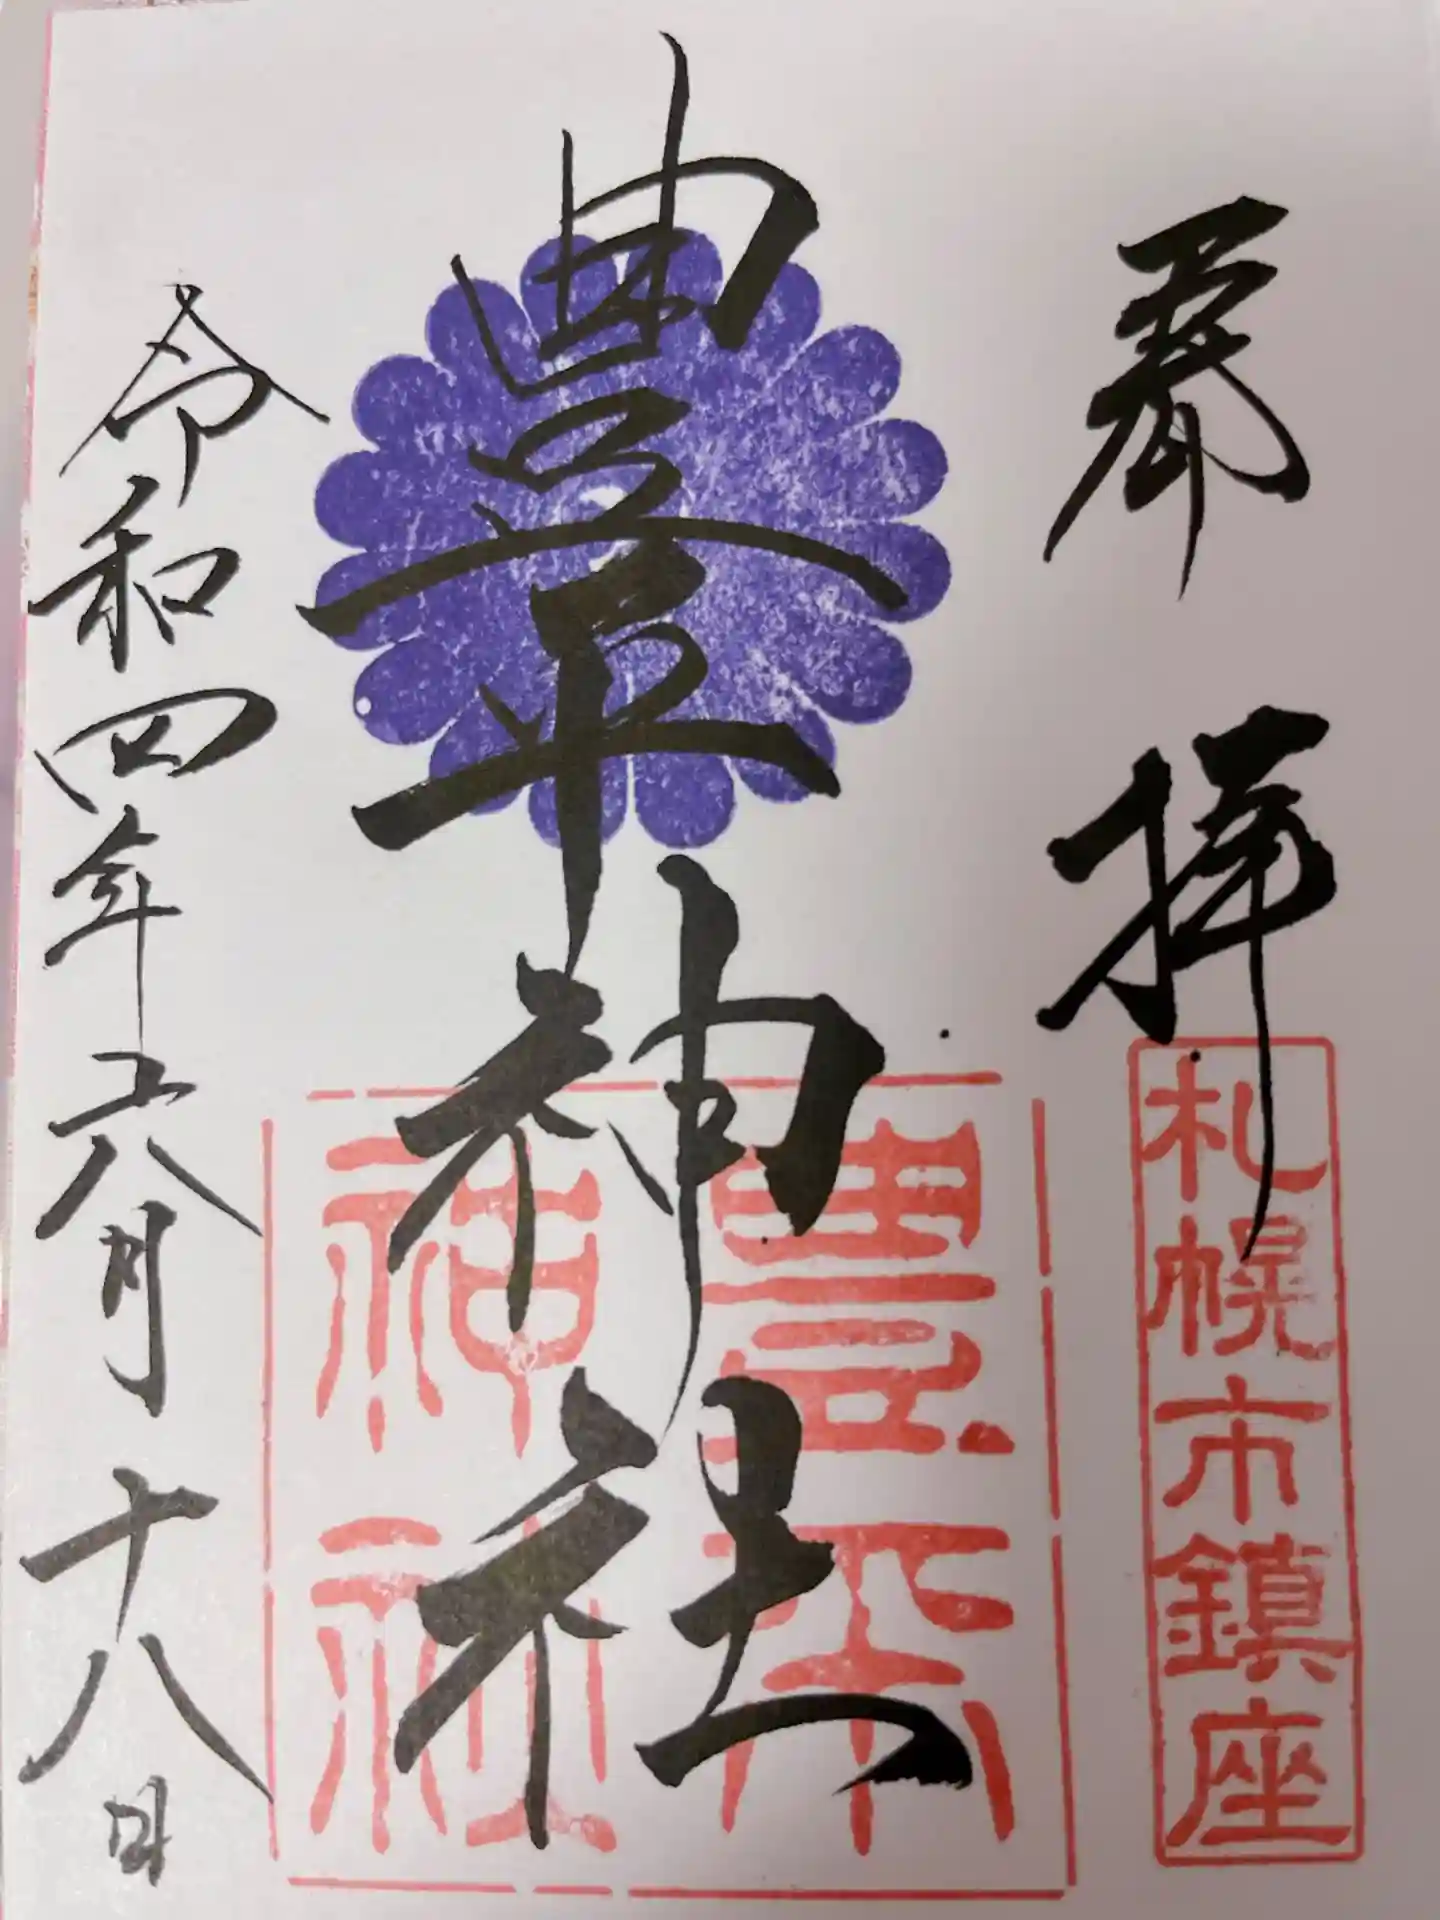 奉拝
札幌市鎮座
豊平神社
豊平
神社
令和四年六月十八日